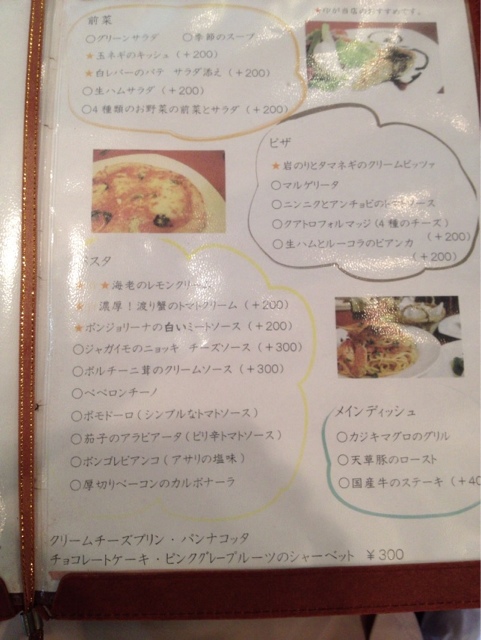 前菜
★印が当店のおすすめです。
○グリーンサラダ ○季節のスープ
★玉ネギのキッシュ（+200）
★白レバーのパテ サラダ添え（+200）
○生ハムサラダ（+200）
○4種類のお野菜の前菜とサラダ（+200）
ピザ
★岩のりとタマネギのクリームピッツァ
○マルゲリータ
○ニンニクとアンチョビのトマトソース
○クアトロフォルマッジ(4種のチーズ)
（+200）
○生ハムとルーコラのビアンカ
（+200）
パスタ
★海老のレモンクリーム
★濃厚！渡り蟹のトマトクリーム（+200）
★ボンジョリーナの白いミートソース（+200）
○ジャガイモのニョッキ チーズソース（+300）
○ポルチーニ茸のクリームソース（+300）
○ペペロンチーノ
○ポモドーロ(シンプルなトマトソース)
○茄子のアラビアータ(ピリ辛トマトソース)
○ボンゴレビアンコ(アサリの塩味)
○厚切りベーコンのカルボナーラ
メインディッシュ
○カジキマグロのグリル
○天草豚のロースト
○国産牛のステーキ（+40
クリームチーズプリン・パンナコッタ
チョコレートケーキ・ピンクグレープルーツのシャーベット ￥300